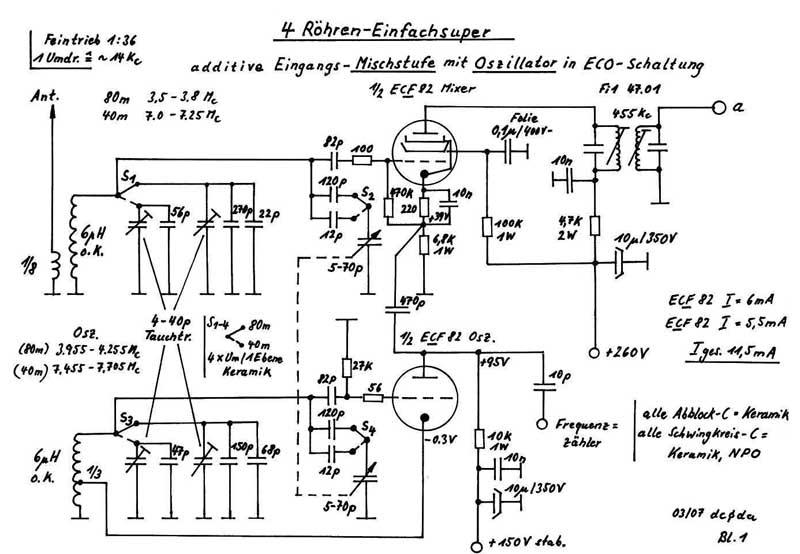 4 Röhren-Einfachsuper
Feintrieb 1:36
1 Umdr. ≙ ~14 Kc
additive Eingangs-Mischstufe mit Oszillator in ECO-Schaltung
Ant.
80m 3,5 – 3.8 Mc
40m 7.0 – 7.25 Mc
1/2 ECF 82 Mixer
Folie
0,1µ/400V-
Fi1 47.01
455 Kc
a
82p
100
S1
120p
S2
470K
220
10n
+39V
10n
56p
270p
22p
12p
6,8K
1W
100K
1W
4,7K
2W
10µ/350V
6µH
o.K.
1/8
5-70p
470p
4-40p
Tauchtr.
S1-4
80m
40m
4xUm/1Ebene
Keramik
Osz.
(80m) 3.955 – 4.255 Mc
(40m) 7,455 – 7,705 Mc
ECF 82 I = 6mA
ECF 82 I = 5,5mA
I ges. 11,5mA
+260V
1/2 ECF 82 Osz.
+95V
27K
82p
56
10p
S3
120p
S4
-0.3V
Frequenz=
zähler
alle Abblock-C = Keramik
alle Schwingkreis-C =
Keramik, NPO
47p
150p
68p
12p
10K
1W
10n
6µH
o.K.
1/3
5-70p
10µ/350V
+150V stab.
03/07 dcβdu
Bl. 1